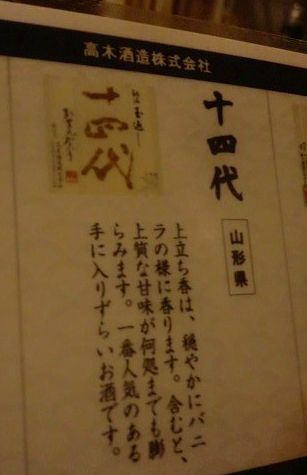 高木酒造株式会社
十四代
山形県
十四代
上立ち香は、穏やかにバニ
ラの様に香ります。含むと、
上質な甘味が何処までも膨
らみます。一番人気のある
手に入りずらいお酒です。